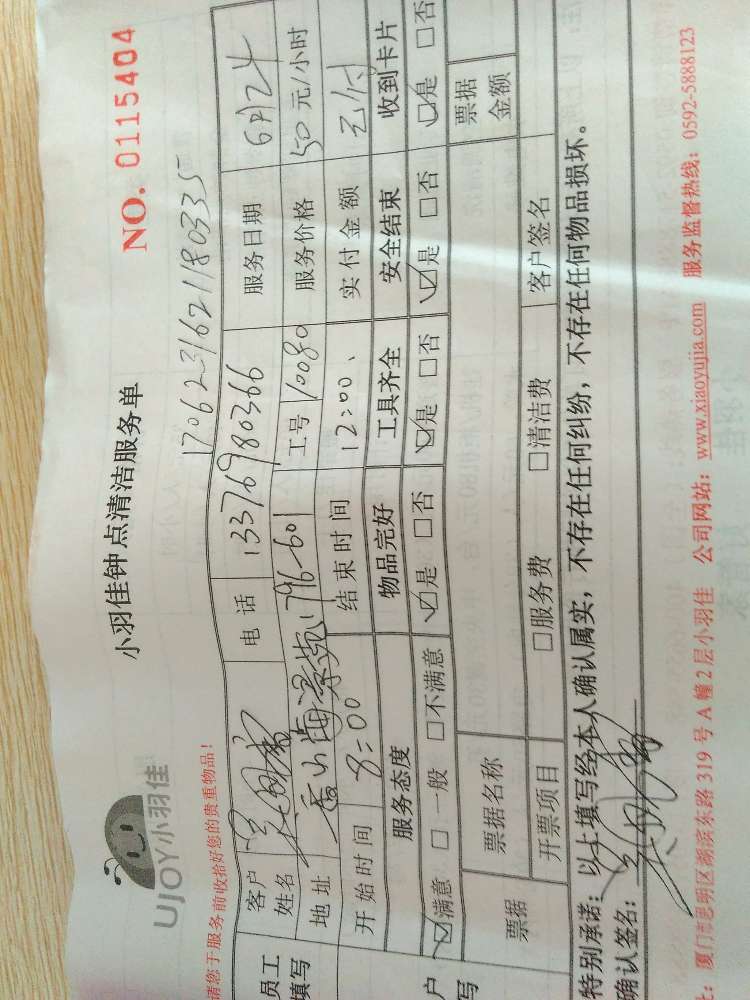 UJOY小羽佳
小羽佳钟点清洁服务单
NO. 0115404
请您于服务前收拾好您的贵重物品!
1706231621180335
员工
填写
客户
姓名
电 话 13376980366 服务日期 6月24
地址 796-601 工号 10080 服务价格 50 元/小时
开始时间 8:00 结束时间 12:00、 实付金额 已付
服务态度 物品完好 工具齐全 安全结束 收到卡片
☑满意 □ 一般 □不满意 ☑是 □否 ☑是 □否 ☑是 □否 ☑是 □否
户
写
票据 票据名称 票据
金额
开票项目 □服务费 □清洁费 客户签名
特别承诺: 以上填写经本人确认属实, 不存在任何纠纷, 不存在任何物品损坏。
确认签名:
: 厦门市思明区湖滨东路 319 号 A 幢 2 层小羽佳 公司网站: www.xiaoyujia.com 服务监督热线: 0592-5888123